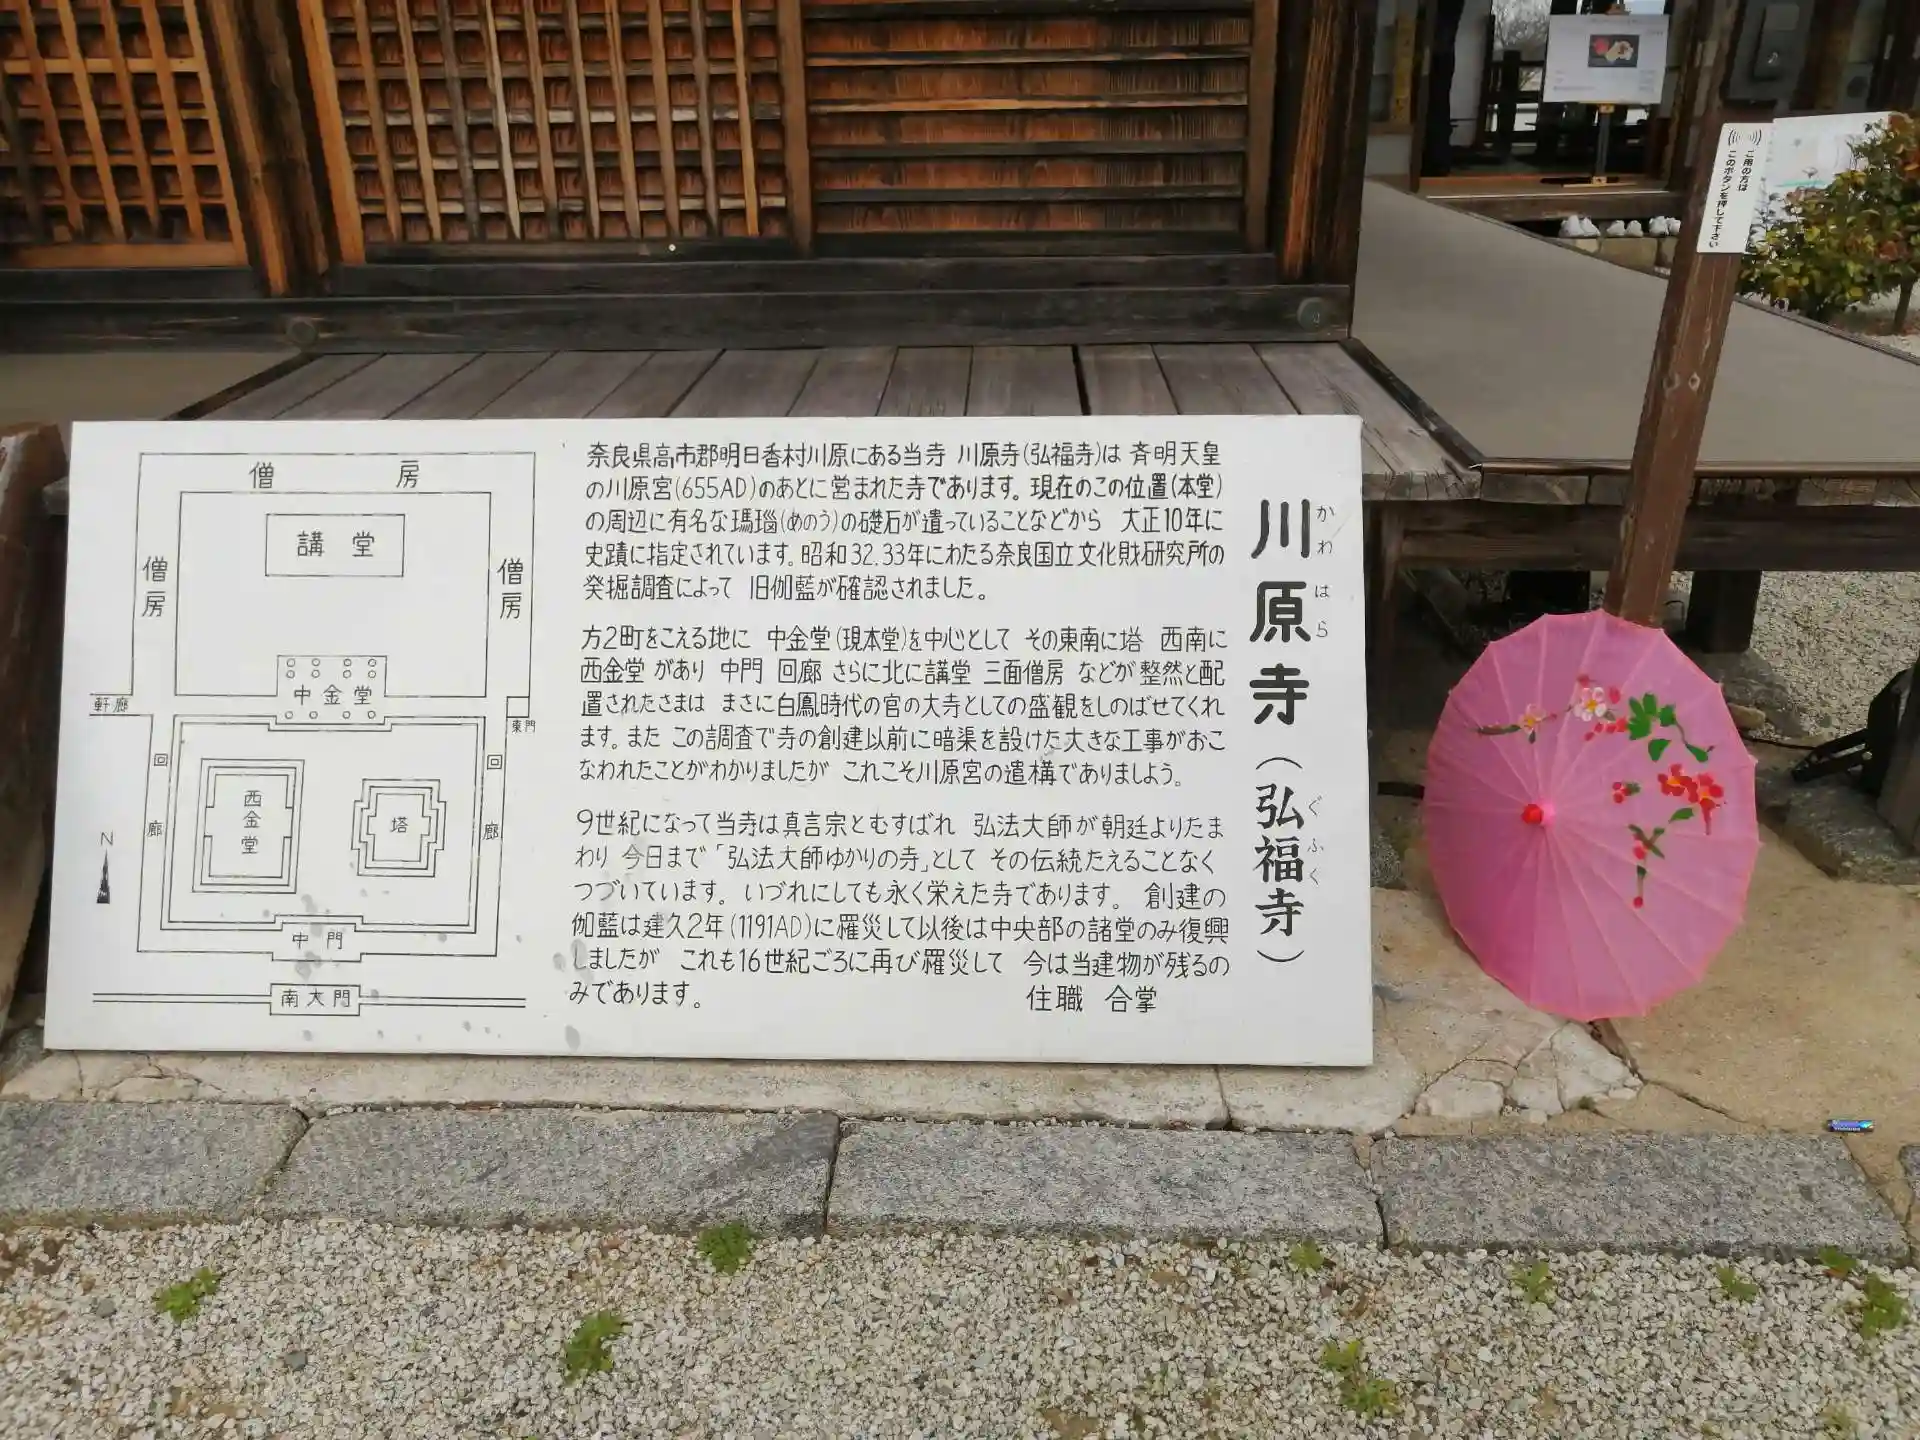 川原寺(弘福寺)
かわはら
ぐふく
奈良県高市郡明日香村川原にある当寺 川原寺(弘福寺)は 斉明天皇
の川原宮(655AD)のあとに営まれた寺であります。現在のこの位置(本堂)
の周辺に有名な瑪瑙(めのう)の礎石が遺っていることなどから 大正10年に
史蹟に指定されています。昭和32.33年にわたる奈良国立文化財研究所の
発掘調査によって 旧伽藍が確認されました。
方2町をこえる地に 中金堂(現本堂)を中心として その東南に塔 西南に
西金堂 があり 中門 回廊 さらに北に講堂 三面僧房 などが整然と配
置されたさまは まさに白鳳時代の官の大寺としての盛観をしのばせてくれ
ます。また この調査で寺の創建以前に暗渠を設けた大きな工事がおこ
なわれたことがわかりましたが これこそ川原宮の遺構でありましよう。
9世紀になって当寺は真言宗とむすばれ 弘法大師が朝廷よりたま
わり 今日まで「弘法大師ゆかりの寺」として その伝統たえることなく
つづいています。いづれにしても永く栄えた寺であります。 創建の
伽藍は建久2年(1191AD)に罹災して以後は中央部の諸堂のみ復興
しましたが これも16世紀ごろに再び罹災して 今は当建物が残るの
みであります。
住職 合掌
僧 房
講 堂
僧房
僧房
中金堂
軒廊
東門
回廊
回廊
西金堂
塔
N
中門
南大門
ご用の方は
このボタンを押して下さい